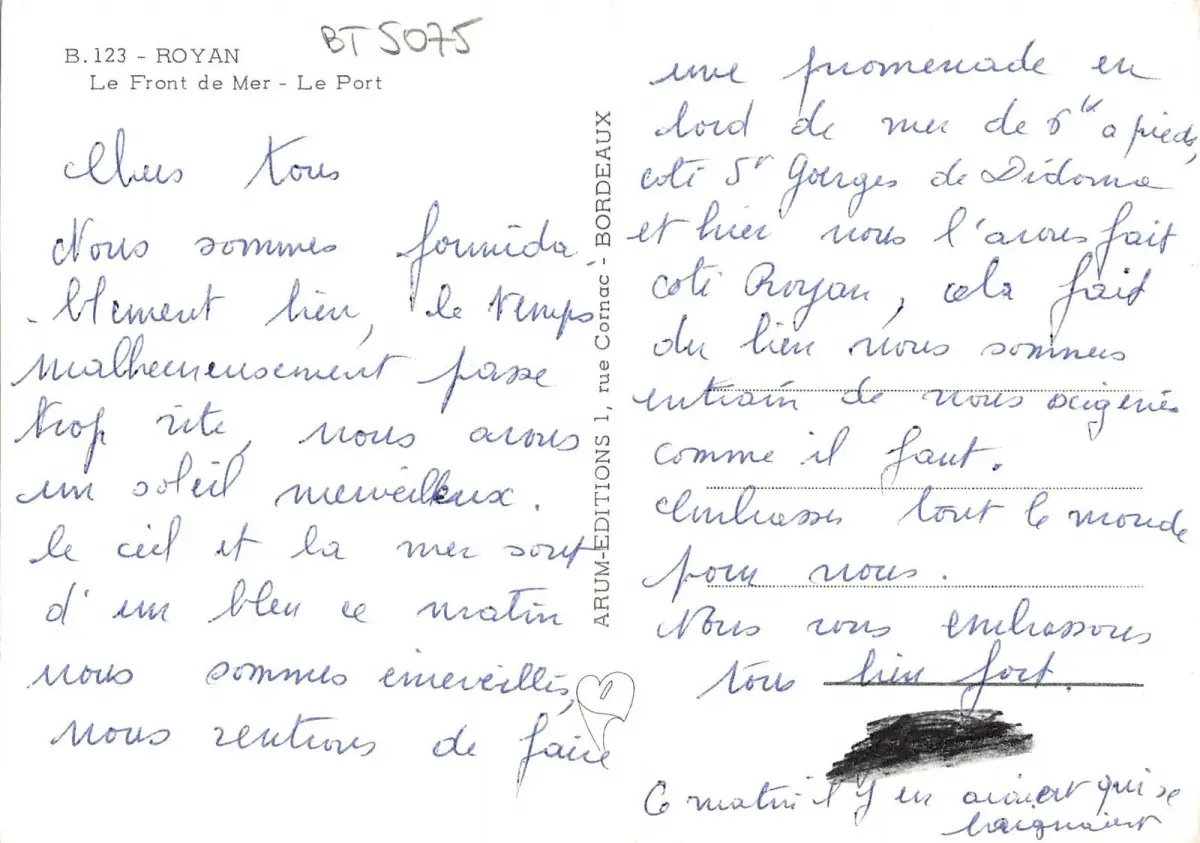 B.123 - ROYAN
Le Front de Mer - Le Port
BT 5075
Chers tous
Nous sommes formida
-blement bien, le temps
malheureusement passe
trop vite, nous avons
un soleil merveilleux.
le ciel et la mer sont
d'un bleu ce matin
nous sommes émerveillés,
nous rentrons de faire
ARUM-EDITIONS 1, rue Cornac - BORDEAUX
une promenade en
bord de mer de 6 k a pieds,
coté St Goerges de Didonne
et hier nous l'avons fait
coté Royan, cela fait
du bien nous sommes
entrain de nous oxigénés
comme il faut.
Embrasses tout le monde
pour nous.
Nous vous embrassons
tous bien fort.
Ce matin il y en avaient qui se
baignaient